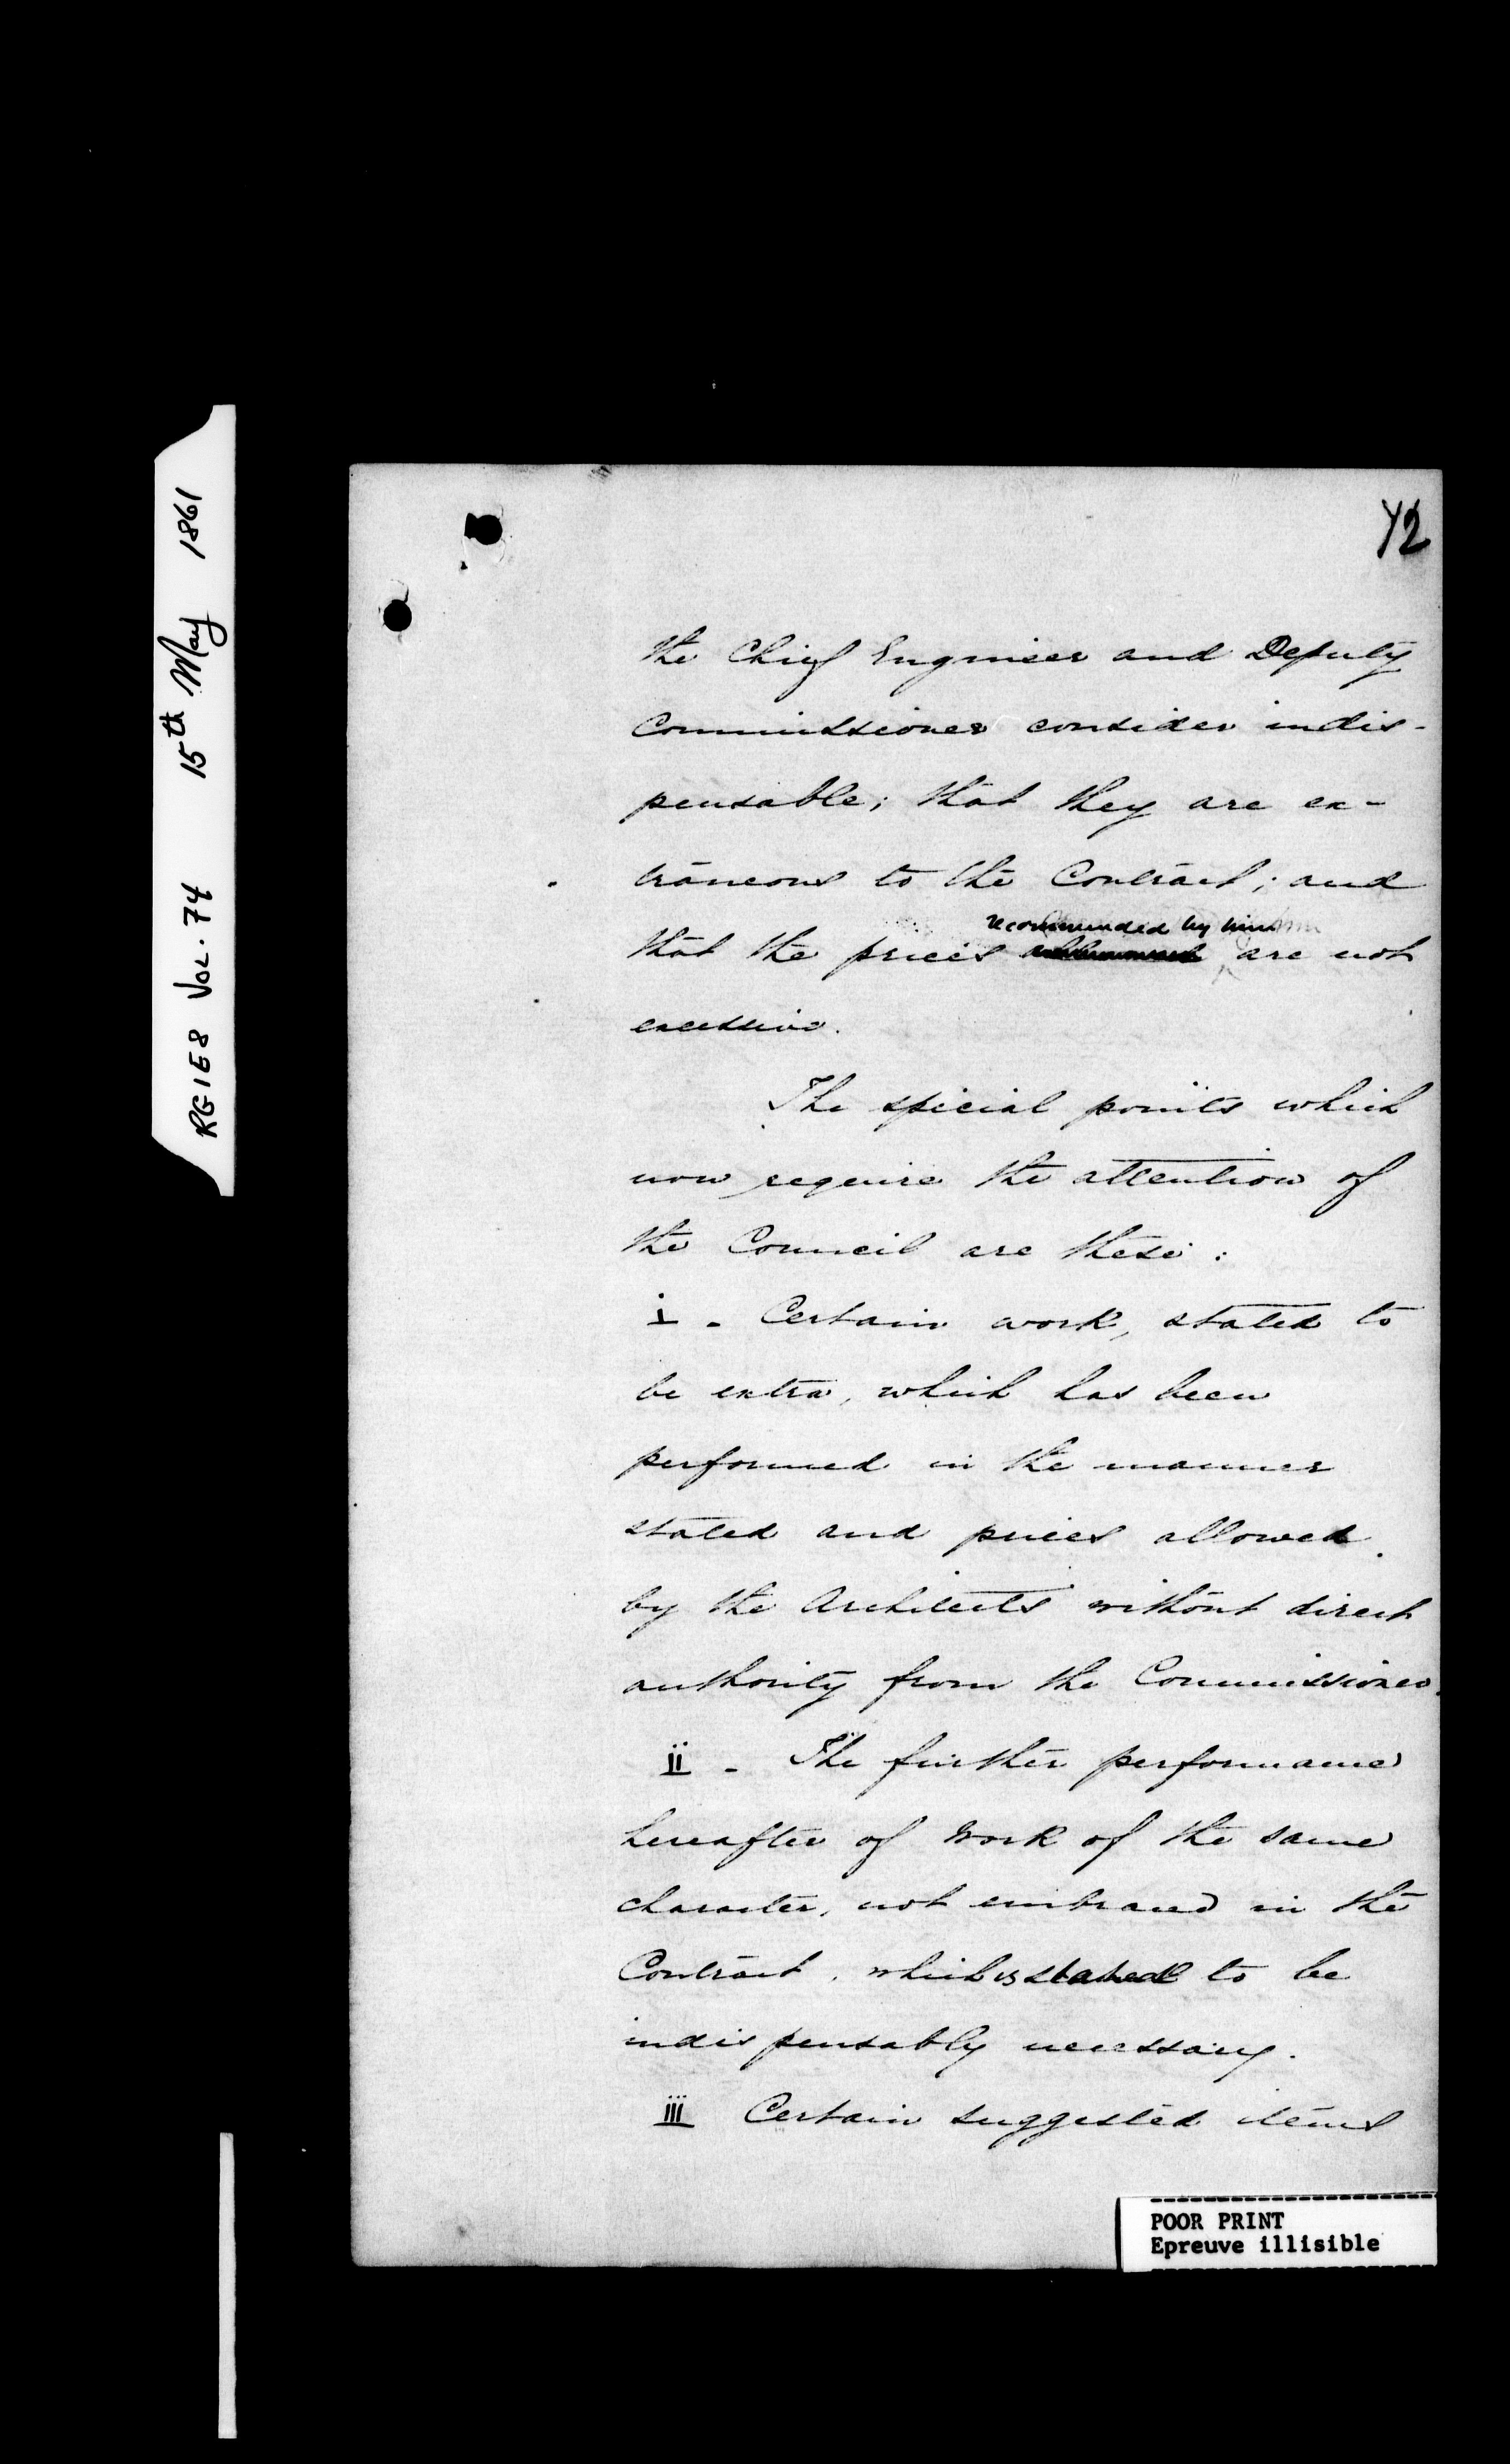 RG1E8 Vol. 74 15th May 1861
72
the Chief Engineer and Deputy
Commissioner consider indis-
pensable; that they are ex-
traneous to the Contract; and
recommended by him
that the prices are not
excessive.
The special points which
now require the attention of
the Council are these:
i - Certain work, stated to
be extra, which has been
performed in the manner
stated and prices allowed
by the Architects without direct
authority from the Commissioner.
ii - The further performance
hereafter of work of the same
character, not embraced in the
Contract, which is stated to be
indispensably necessary.
iii Certain suggested items
POOR PRINT
Epreuve illisible